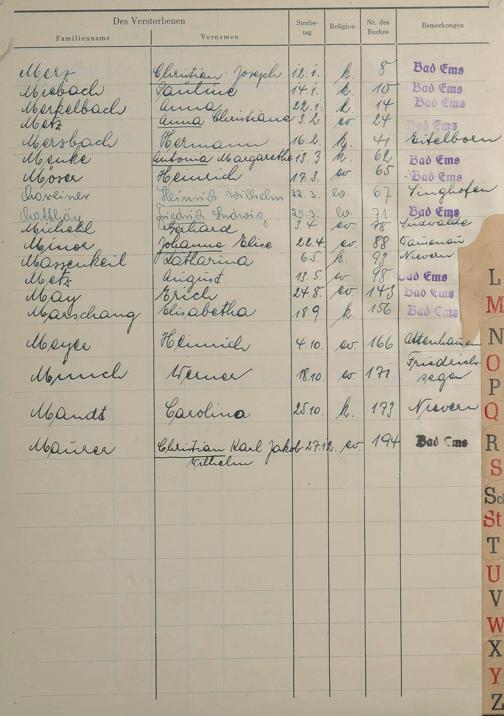 Des Verstorbenen Sterbe-tag Religion Nr. des Buches Bemerkungen
Familienname Vornamen
Merz Christian Joseph 12.1. k. 8 Bad Ems
Miebach Pauline 14.1. k. 10 Bad Ems
Merkelbach Anna 22.1. k. 14 Bad Ems
Metz Anna Christiana 3.2. ev. 24 Bad Ems
Mersbach Hermann 16.2. k. 41 Eitelborn
Menke Antonia Margaretha 13.3 k. 62 Bad Ems
Möser Heinrich 17.3. ev. 65 Bad Ems
Heinrich Wilhelm 22.3. ev. 67 Singhofen
Friedrich Ludwig 25.3. ev. 71 Bad Ems
Michel 3.4 ev. 78
Minor Johanna Elise 22.4. ev. 88
Massenkeil Katharina 6.5 k. 93 Nievern
Metz August 13.5 ev. 98 Bad Ems
May Erich 24.8. ev. 143 Bad Ems
Marschang Elisabetha 18.9 k. 156 Bad Ems
Meyer Heinrich 4.10. ev. 166 Attenhausen
Münch Werner 18.10. ev. 171 Friedrichs-
segen
Mandt Carolina 25.10. k. 173 Nievern
Maurer Christian Karl Jakob 27.12. ev. 194 Bad Ems
Wilhelm
L
M
N
O
P
Q
R
S
Sc
St
T
U
V
W
X
Y
Z